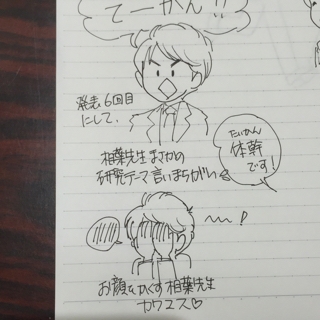 てーかん!!
発表6回目
にして、
相葉先生まさかの
研究テーマ言いまちがい
たいかん
体幹
です!
お顔をかくす相葉先生
カワユス♡